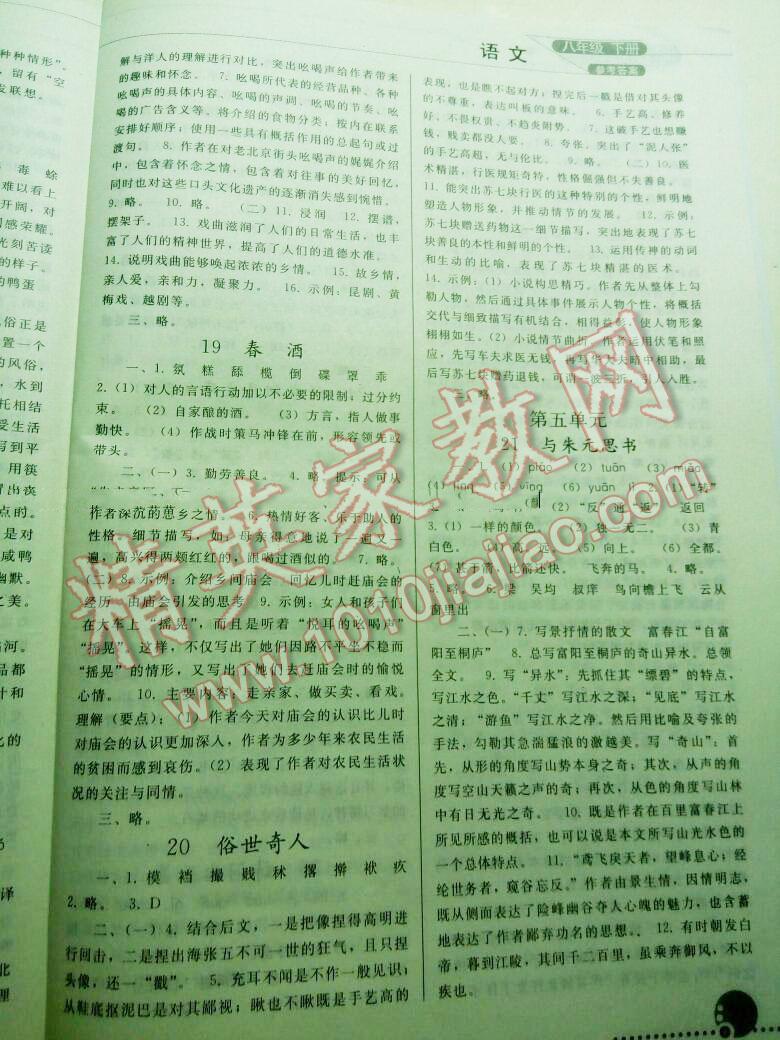 种种情形”。
，留有“空
发联想。
毒 蛉
难以看上
开阔，对
同感荣耀。
光刻苦读
的样子。
的鸭蛋
俗正是
置一个
的风俗，
，水到
托相结
受生活
写到平
用筷
点的。
是对
咸鸭
幽默。
之美。
临河。
品都
计和
化的
译
北
理
语文
八年级 下册
参考答案
解与洋人的理解进行对比，突出吆喝声给作者带来
的趣味和怀念。 7. 吆喝所代表的经营品种、各种
吆喝声的具体内容、吆喝的声调、吆喝的节奏、吆
喝的广告含义等。将介绍的食物分类；按内在联系
安排好顺序；使用一些具有概括作用的总起句或过
渡句。 8. 作者在对老北京街头吆喝声的娓娓介绍
中，包含着怀念之情，包含着对往事的美好回忆，
同时也对这些口头文化遗产的逐渐消失感到惋惜。
9. 略。 10. 略。 （二）11. 浸润 12. 摆谱，
摆架子。 13. 戏曲滋润了人们的日常生活，也丰
富了人们的精神世界，提高了人们的道德水准。
14. 说明戏曲能够唤起浓浓的乡情。 15. 故乡情，
亲人爱，亲和力，凝聚力。 16. 示例：昆剧、黄
梅戏、越剧等。
三、略。
19 春 酒
一、1. 氛 糕 舔 榄 倒 碟 罩 乖
2.（1）对人的言语行动加以不必要的限制；过分约
束。 （2）自家酿的酒。 （3）方言，指人做事
勤快。 （4）作战时策马冲锋在前，形容领先或
带头。
二、（一）3. 勤劳善良。 4. 略。提示：可从
作者深沉的思乡之情。 6. 热情好客、乐于助人的
性格。细节描写，如：母亲得意地说了一遍又一
遍，高兴得两颊红红的，跟喝过酒似的。 7. 略。
（二）8. 示例：介绍乡间庙会 回忆儿时赶庙会的
经历 由庙会引发的思考 9. 示例：女人和孩子们
在大车上“摇晃”，而且是听着“悦耳的吆喝声”
“摇晃”。这样，不仅写出了她们因路不平坐不稳而
“摇晃”的情形，又写出了她们去赶庙会时的愉悦
心情。 10. 主要内容：走亲家、做买卖、看戏。
理解（要点）：（1）作者今天对庙会的认识比儿时
对庙会的认识更加深入，作者为多少年来农民生活
的贫困而感到哀伤。（2）表现了作者对农民生活状
况的关注与同情。
三、略。
20 俗世奇人
一、1. 模 裆 撮 贱 秫 撂 擀 袱 疚
2. 略。 3. D
二、（一）4. 结合后文，一是把像捏得高明进行
回击，二是捏出海张五不可一世的狂气，且只捏
头像，还一“戳”。 5. 充耳不闻是不作一般见识；
从鞋底抠泥巴是对其鄙视；瞅也不瞅既是手艺高的
表现，也是瞧不起对方；捏完后一戳是借对其头像
的不尊重，表达叫板的意味。 6. 手艺高、修养
好、不畏权贵、不趋炎附势。 7. 这破手艺也想赚
钱，贱卖都没人要。 8. 夸张。突出了“泥人张”
的手艺高超，无与伦比。 9. 略。 （二）10. 医
术精湛，行医规矩奇特，性格倔强但不失善良。
11. 能突出苏七块行医的这种特别的个性，鲜明地
塑造人物形象，并推动情节的发展。 12. 示例：
苏七块赠送药物这一细节描写，突出地表现了苏七
块善良的本性和鲜明的个性。 13. 运用传神的动词
和生动的比喻，表现了苏七块精湛的医术。
14. 示例：（1）小说构思精巧。作者先从整体上勾
勒人物，然后通过具体事件展示人物个性，将概括
交代与细致描写有机结合，相得益彰，使人物形象
栩栩如生。（2）小说情节曲折。作者运用伏笔和照
应，先写车夫求医无钱，再写华大夫暗中相助，最
后写苏七块赠药退钱，可谓一波三折，引人入胜。
三、略。
第五单元
21 与朱元思书
一、1.（1）piǎo （2）tuān （3）miǎo
（4）líng （5）yíng （6）yuān 2.（1）“转”
（2）“反”通“返”，返回
3.（1）一样的颜色。 （2）独一无二。 （3）青
白色。 （4）高，远。 （5）向上。 （6）全都。
（7）甚于箭，比箭还快。 飞奔的马。 4. 略。
5. 略。 6. 梁 吴均 叔庠 鸟向檐上飞 云从
窗里出
二、（一）7. 写景抒情的散文 富春江“自富
阳至桐庐” 8. 总写富阳至桐庐的奇山异水。总领
全文。 9. 写“异水”：先抓住其“缥碧”的特点，
写江水之色。“千丈”写江水之深；“见底”写江水
之清；“游鱼”写江水之净。然后用比喻及夸张的
手法，勾勒其急湍猛浪的激越美。写“奇山”：首
先，从形的角度写山势本身之奇；其次，从声的角
度写空山天籁之声的奇；再次，从色的角度写山林
中有日无光之奇。 10. 既是作者在百里富春江上
所见所感的概括，也可以说是本文所写山光水色的
一个总体特点。 11. “鸢飞戾天者，望峰息心；经
纶世务者，窥谷忘反。”作者由景生情，因情明志，
既从侧面表达了险峰幽谷夺人心魄的魅力，也含蓄
地表达了作者鄙弃功名的思想。 12. 有时朝发白
帝，暮到江陵，其间千二百里，虽乘奔御风，不以
疾也。
精英家教网
www.1010jiajiao.com